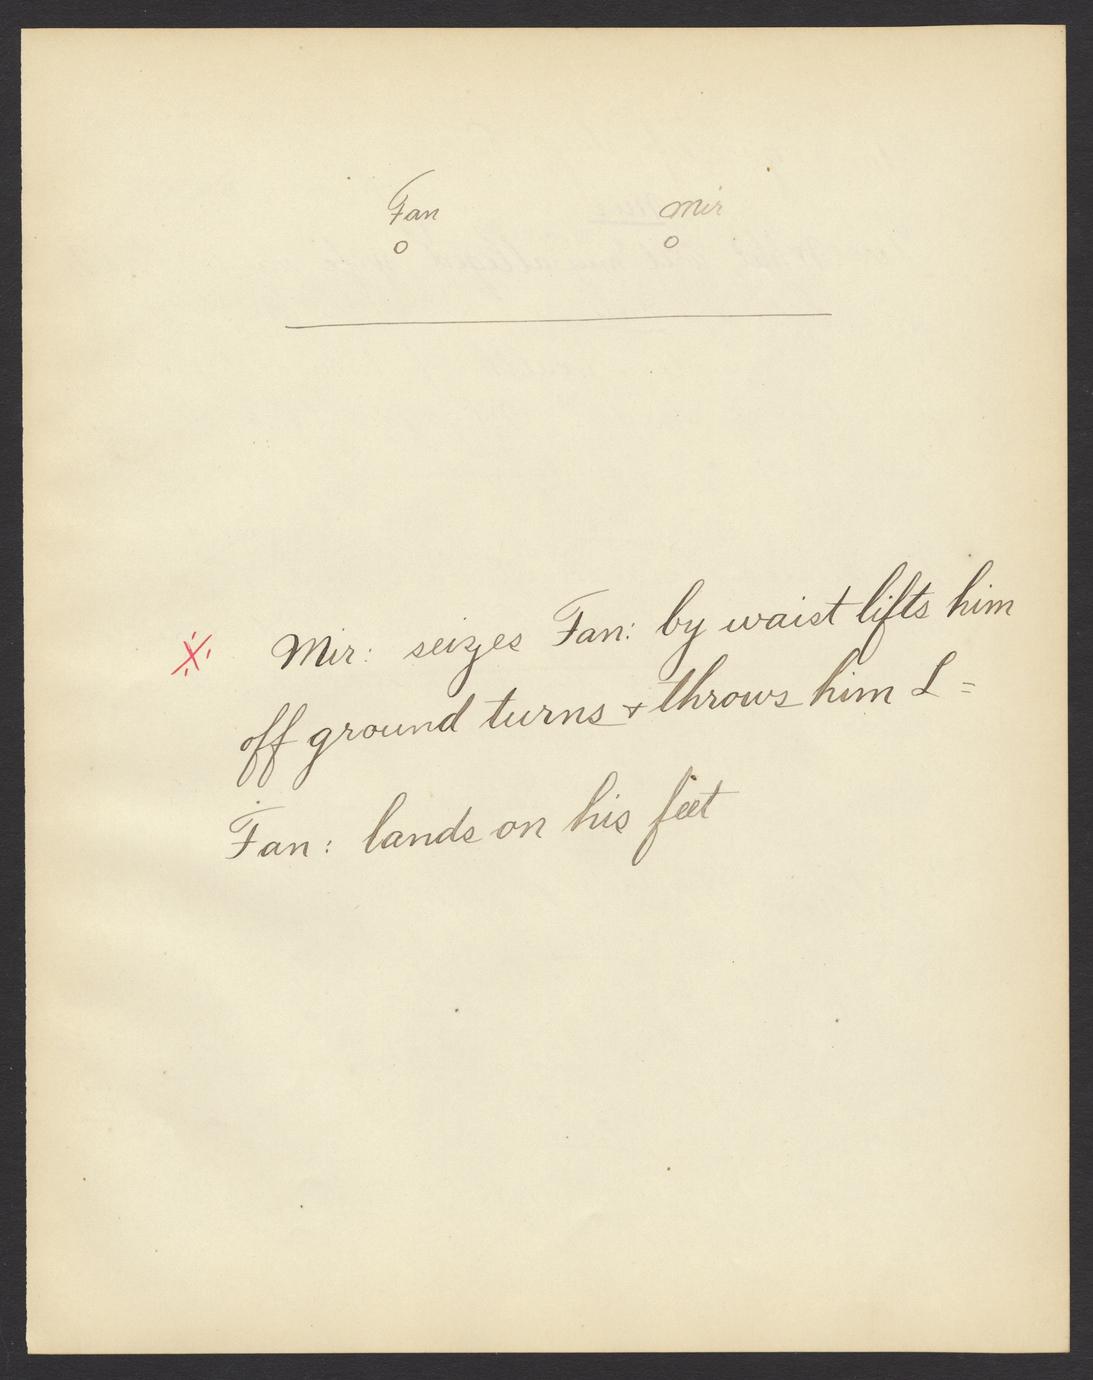 Fan Mir
o o
※ Mir: seizes Fan: by waist lifts him
off ground turns + throws him L =
Fan: lands on his feet